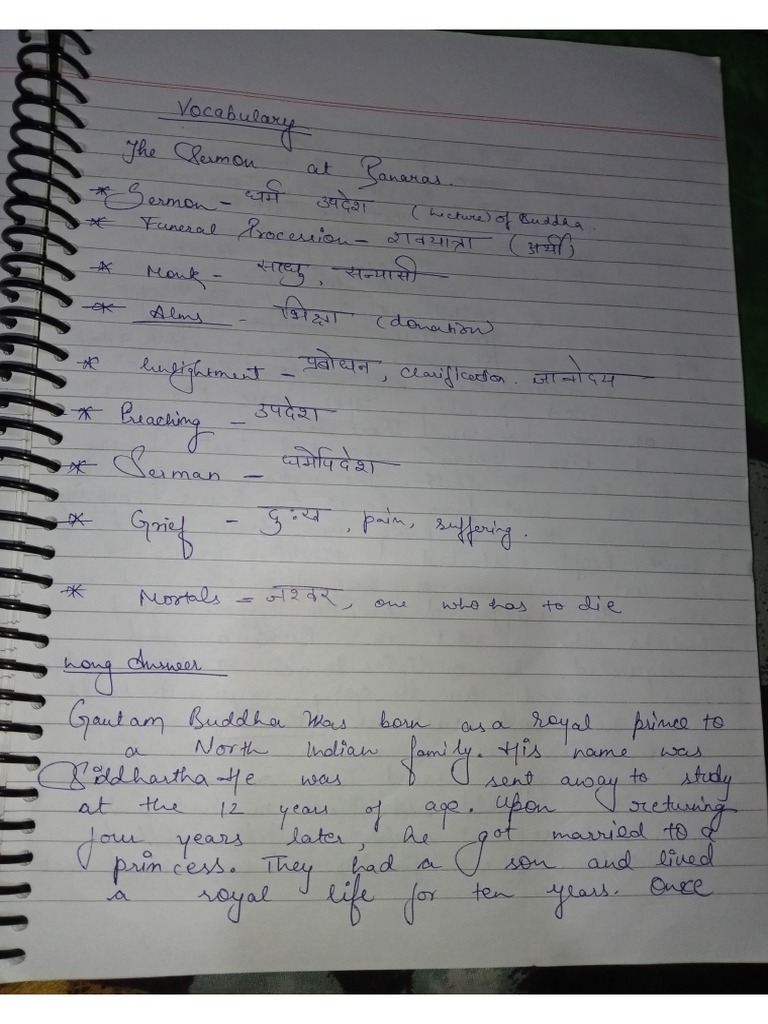 Vocabulary
The Sermon at Banaras.
* Sermon - धर्म उपदेश (Lecture) of Buddha.
* Funeral Procession - शवयात्रा (अर्थी)
* Monk - साधु, सन्यासी
* Alms - भिक्षा (donation)
* Enlightment - प्रबोधन, clarification. ज्ञानोदय
* Preaching - उपदेश
* Serman - धर्मोपदेश
* Grief - दुःख, pain, suffering.
* Mortals = नश्वर, one who has to die
Long Answer
Gautam Buddha was born as a royal prince to
a North Indian family. His name was
Siddhartha He was sent away to study
at the 12 years of age. Upon returing
four years later, he got married to a
princess. They had a son and lived
a royal life for ten years. Once